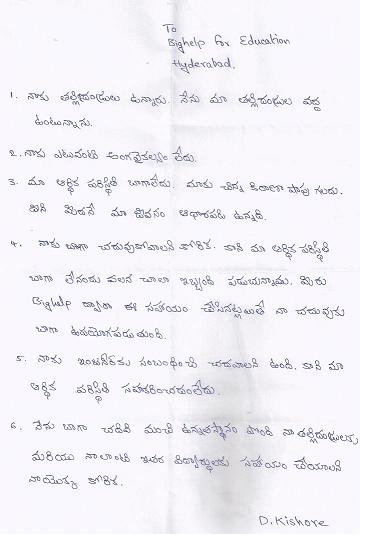 To
Bighelp for Education
Hyderabad.
1. నాకు తల్లిదండ్రులు ఉన్నారు. నేను మా తల్లిదండ్రుల వద్ద
ఉంటున్నాను.
2. నాకు ఎటువంటి అంగవైకల్యం లేదు.
3. మా ఆర్థిక పరిస్థితి బాగాలేదు. మాకు చిన్న కిరాణా షాపు గలదు.
దాని మీదనే మా జీవనం ఆధారపడి ఉన్నది.
4. నాకు బాగా చదువుకోవాలని కోరిక. కాని మా ఆర్థిక పరిస్థితి
బాగా లేనందు వలన చాలా ఇబ్బంది పడుచున్నాము. మీరు
Bighelp ద్వారా ఈ సహాయం చేసినట్లయితే నా చదువుకు
బాగా ఉపయోగపడుతుంది.
5. నాకు ఇంజనీర్‌కు సంబంధించి చదవాలని ఉంది. కాని మా
ఆర్థిక పరిస్థితి సహకరించడంలేదు.
6. నేను బాగా చదివి మంచి ఉన్నతస్థానం పొంది నా తల్లిదండ్రులకు
మరియు నాలాంటి ఇతర విద్యార్థులకు సహాయం చేయాలని
నాయొక్క కోరిక.
D. Kishore